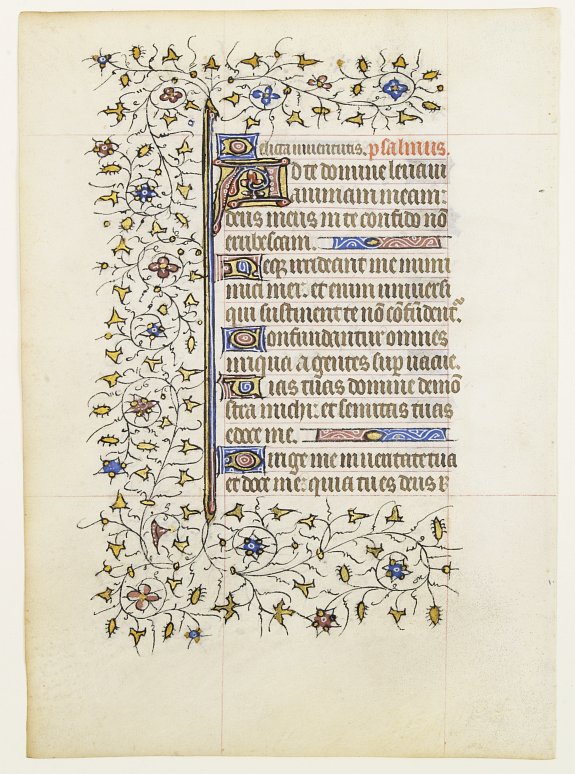 Delicta iuuentutis. psalmus.
Ad te domine leuaui
animam meam:
deus meus in te confido nõ
erubescam.
Neqz irrideant me inimi
mici mei: et enim uniuersi
qui sustinent te nõ cõfidentᷣ.
Confundantur omnes
iniqua agentes supuacue.
Uias tuas domine demõ
stra michi: et semitas tuas
edoce me.
Dirige me in ueritate tua
et doce me: quia tu es deus